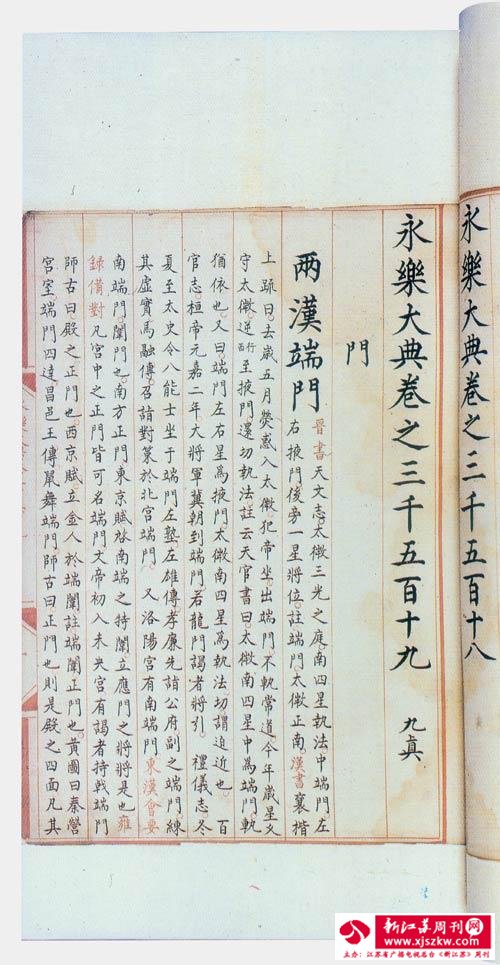 永樂大典卷之三千五百十八
永樂大典卷之三千五百十九 九真
門
兩漢端門
晉書天文志太微三光之庭南四星執法中端門左
右掖門後旁一星將位註端門太微正南漢書襄楷
上疏曰去歲五月熒惑入太微犯帝坐出端門不軌常道今年歲星久
守太微逆行西至掖門還切執法註云天官書曰太微南四星中為端門軌
猶依也又曰端門左右星為掖門太微南四星為執法切謂迫近也 百
官志桓帝元嘉二年大將軍冀朝到端門若龍門謁者將引 禮儀志冬
夏至太史令八能士坐于端門左塾左雄傳孝廉先詣公府副之端門練
其虛實馬融傳召詣對策於北宮端門 又洛陽宮有南端門東漢會要
南端門闈門也南方正門東京賦啟南端之特闈立應門之將將是也雍
錄備對凡宮中之正門皆可名端門文帝初入未央宮有謁者持戟端門
師古曰殿之正門也西京賦立金人於端闈註端闈正門也黃圖曰秦營
宮室端門四達昌邑王傳鼠舞端門師古曰正門也則是殿之四面凡其
新江苏周刊网
www.xjszkw.com
主办：江苏省广播电视总台《新江苏》周刊